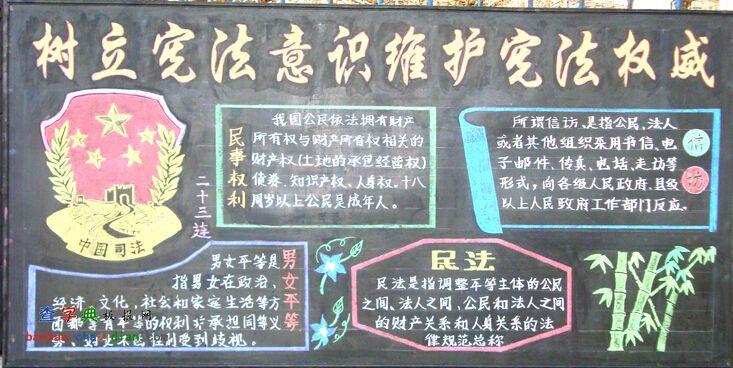 树立宪法意识维护宪法权威
中国司法
二十三连
民事权利
我国公民依法拥有财产
所有权与财产所有权相关的
财产权(土地的承包经营权)
债券、知识产权、人身权、十八
周岁以上公民是成年人。
信访
所谓信访,是指公民、法人
或者其他组织采用书信、电
子邮件、传真、电话、走访等
形式,向各级人民政府、县级
以上人民政府工作部门反应。
男女平等
男女平等是
指男女在政治、
经济、文化、社会和家庭生活等方
面都享有平等的权利并承担同等义
受到歧视。
民法
民法是指调整平等主体的公民
之间、法人之间、公民和法人之间
的财产关系和人身关系的法
律规范总称
查字典板报网